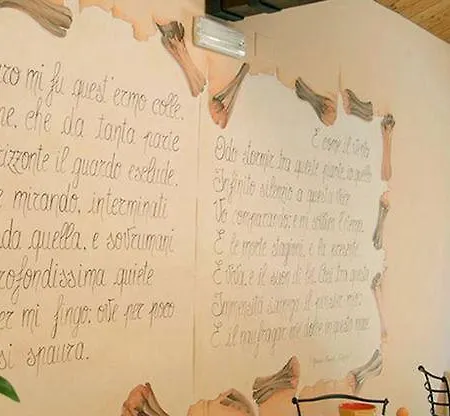 ro mi fu quest'ermo colle,
ne, che da tanta parte
rizzonte il guardo esclude.
e mirando, interminati
da quella, e sovrumani
rofondissima quiete
er mi fingo; ove per poco
si spaura.
E come il vento
Odo stormir tra queste piante, io quello
Infinito silenzio a questa voce
Vo comparando; e mi sovvien l'eterno,
E le morte stagioni, e la presente
E viva, e il suon di lei. Così tra questa
Immensità s'annega il pensier mio:
E il naufragar m'è dolce in questo mare.